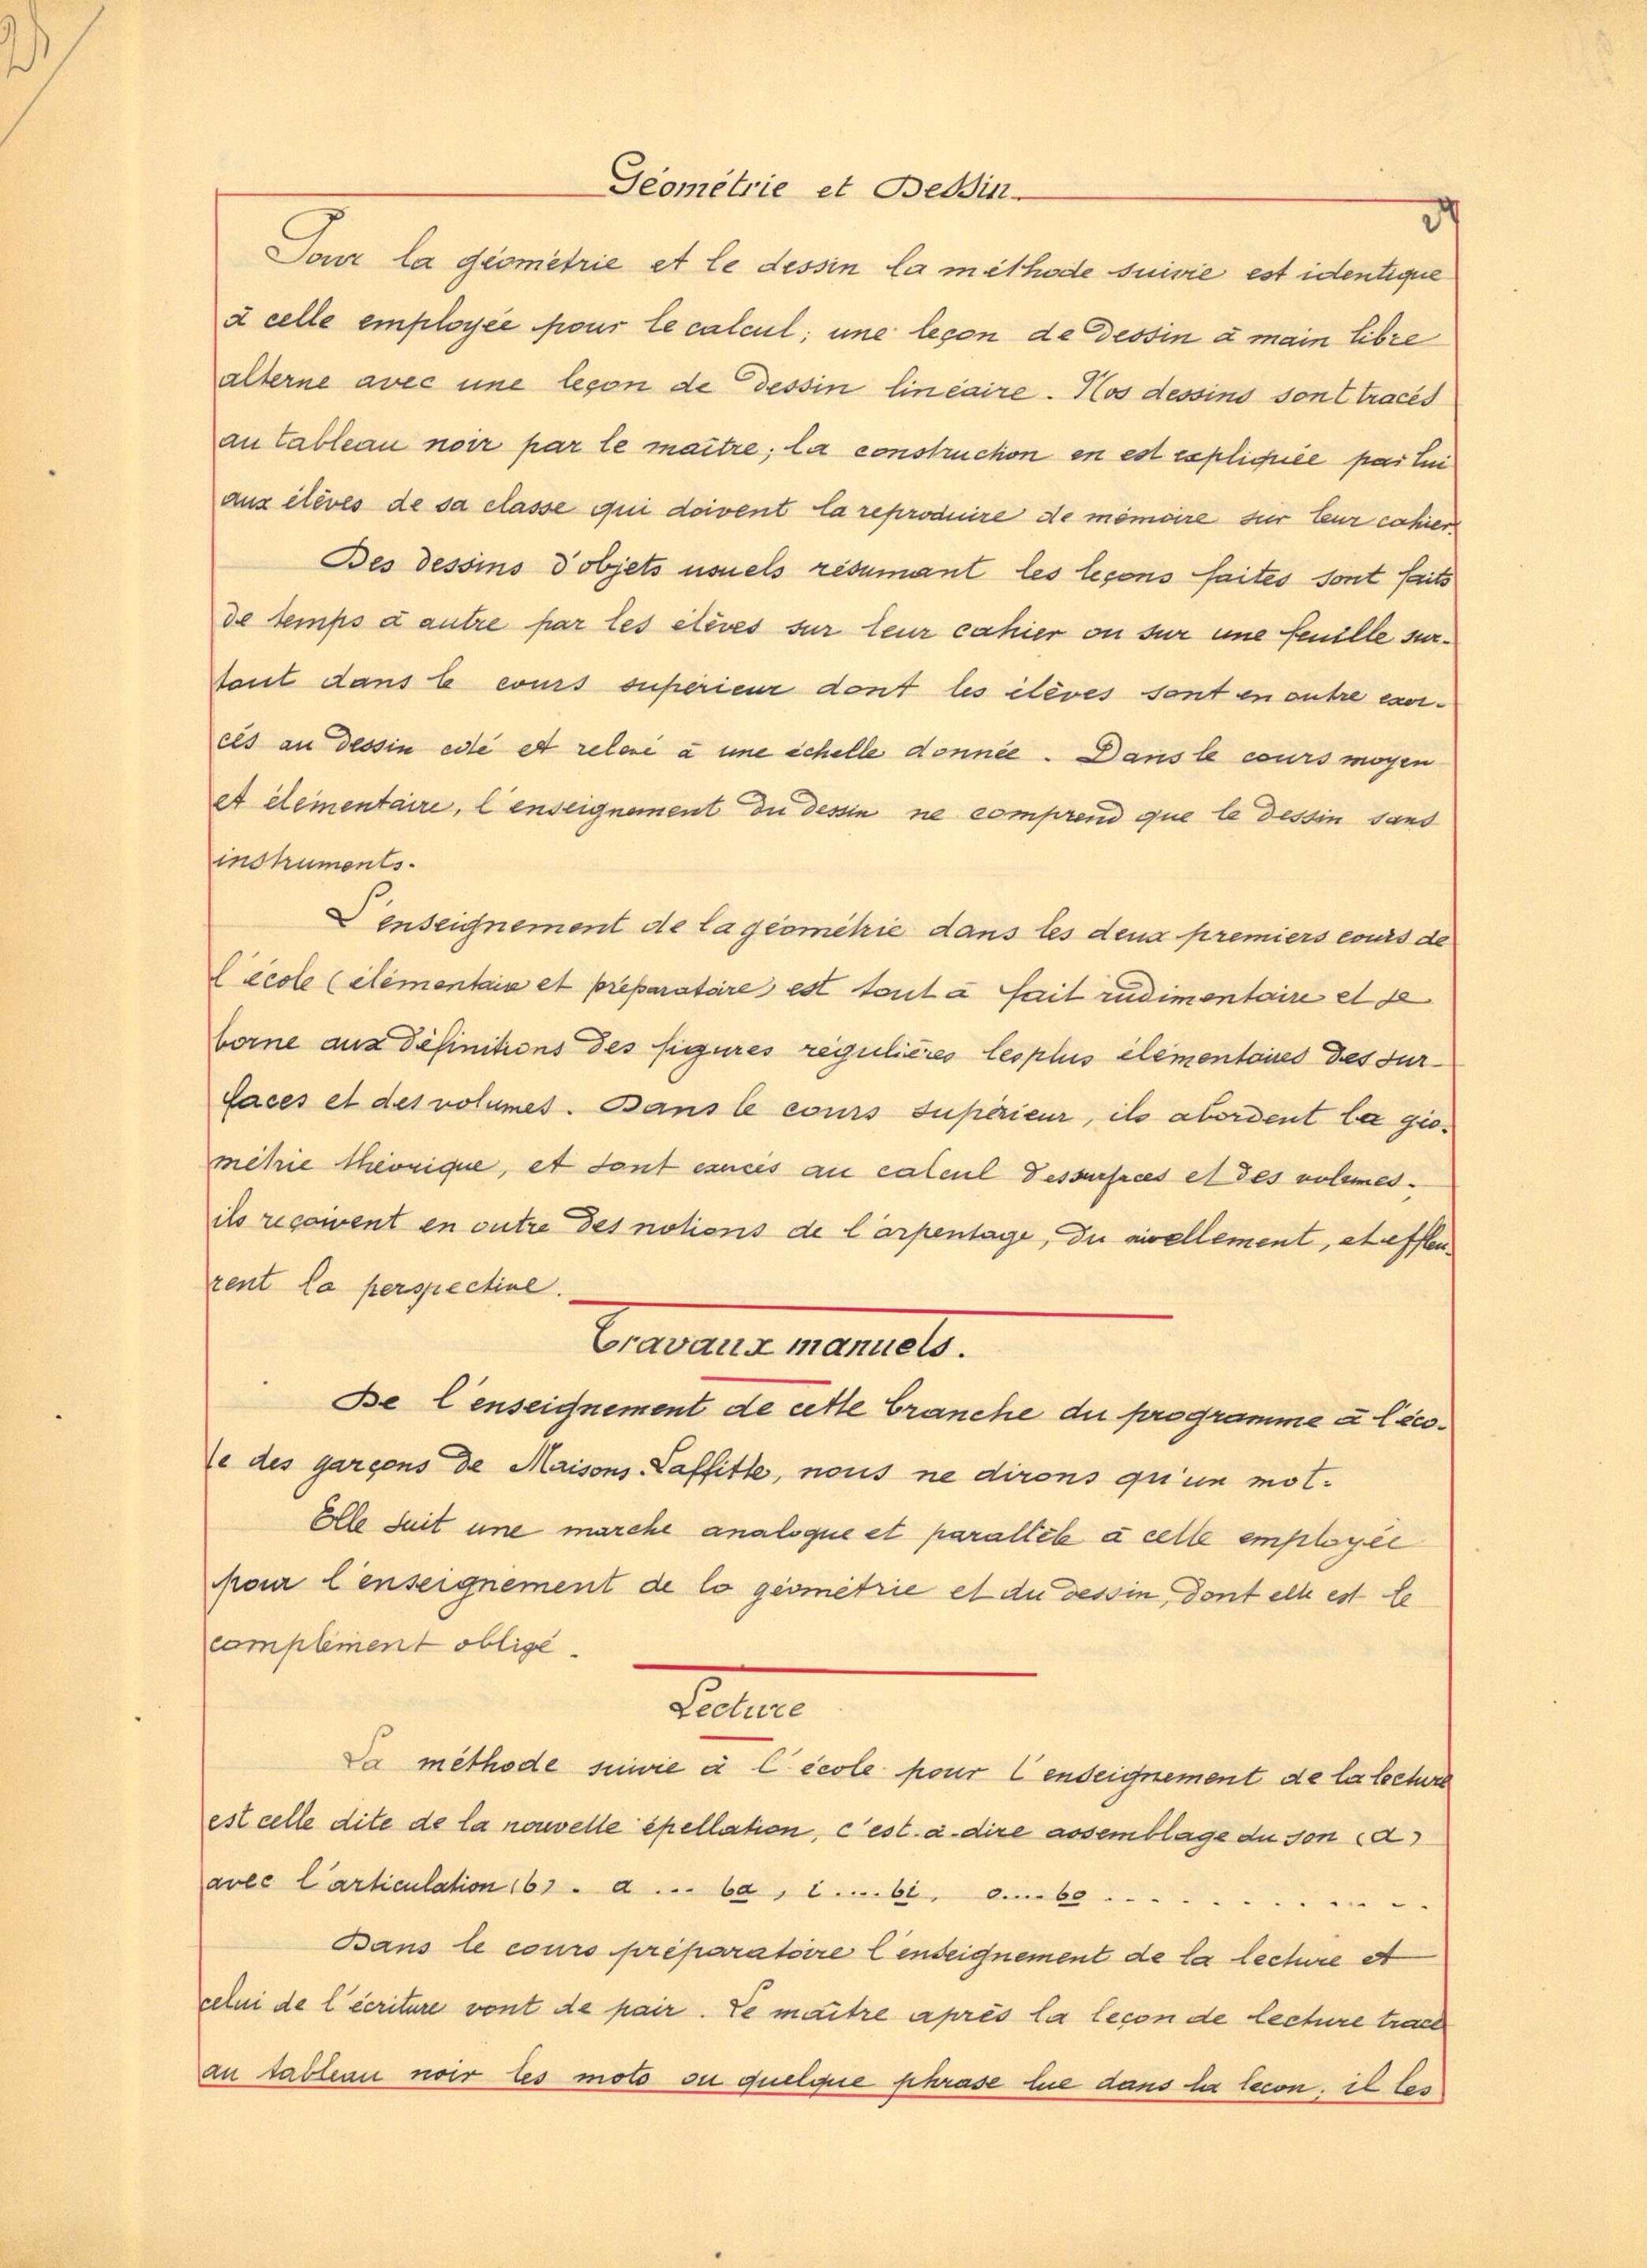 Géométrie et Dessin.
Pour la géométrie et le dessin la méthode suivie est identique
à celle employée pour le calcul; une leçon de dessin à main libre
alterne avec une leçon de dessin linéaire. Nos dessins sont tracés
au tableau noir par le maître; la construction en est expliquée par lui
aux élèves de sa classe qui doivent la reproduire de mémoire sur leur cahier.
Des dessins d'objets usuels résumant les leçons faites sont faits
de temps à autre par les élèves sur leur cahier ou sur une feuille sur-
tout dans le cours supérieur dont les élèves sont en outre exer-
cés au dessin coté et relevé à une échelle donnée. Dans le cours moyen
et élémentaire, l'enseignement du dessin ne comprend que le dessin sans
instruments.
L'enseignement de la géométrie dans les deux premiers cours de
l'école (élémentaire et préparatoire) est tout à fait rudimentaire et se
borne aux définitions des figures régulières les plus élémentaires des sur-
faces et des volumes. Dans le cours supérieur, ils abordent la géo-
métrie théorique, et sont exercés au calcul des surfaces et des volumes.
ils reçoivent en outre des notions de l'arpentage, du nivellement, et effleu-
rent la perspective.
Travaux manuels.
De l'enseignement de cette branche du programme à l'éco-
le des garçons de Maisons-Laffitte, nous ne dirons qu'un mot.
Elle suit une marche analogue et parallèle à celle employée
pour l'enseignement de la géométrie et du dessin, dont elle est le
complément obligé.
Lecture
La méthode suivie à l'école pour l'enseignement de la lecture
est celle dite de la nouvelle épellation, c'est-à-dire assemblage du son (a)
avec l'articulation (b). a ... ba, i .... bi, o .... bo ..........
Dans le cours préparatoire l'enseignement de la lecture et
celui de l'écriture vont de pair. Le maître après la leçon de lecture trace
au tableau noir les mots ou quelque phrase lue dans la leçon. il les